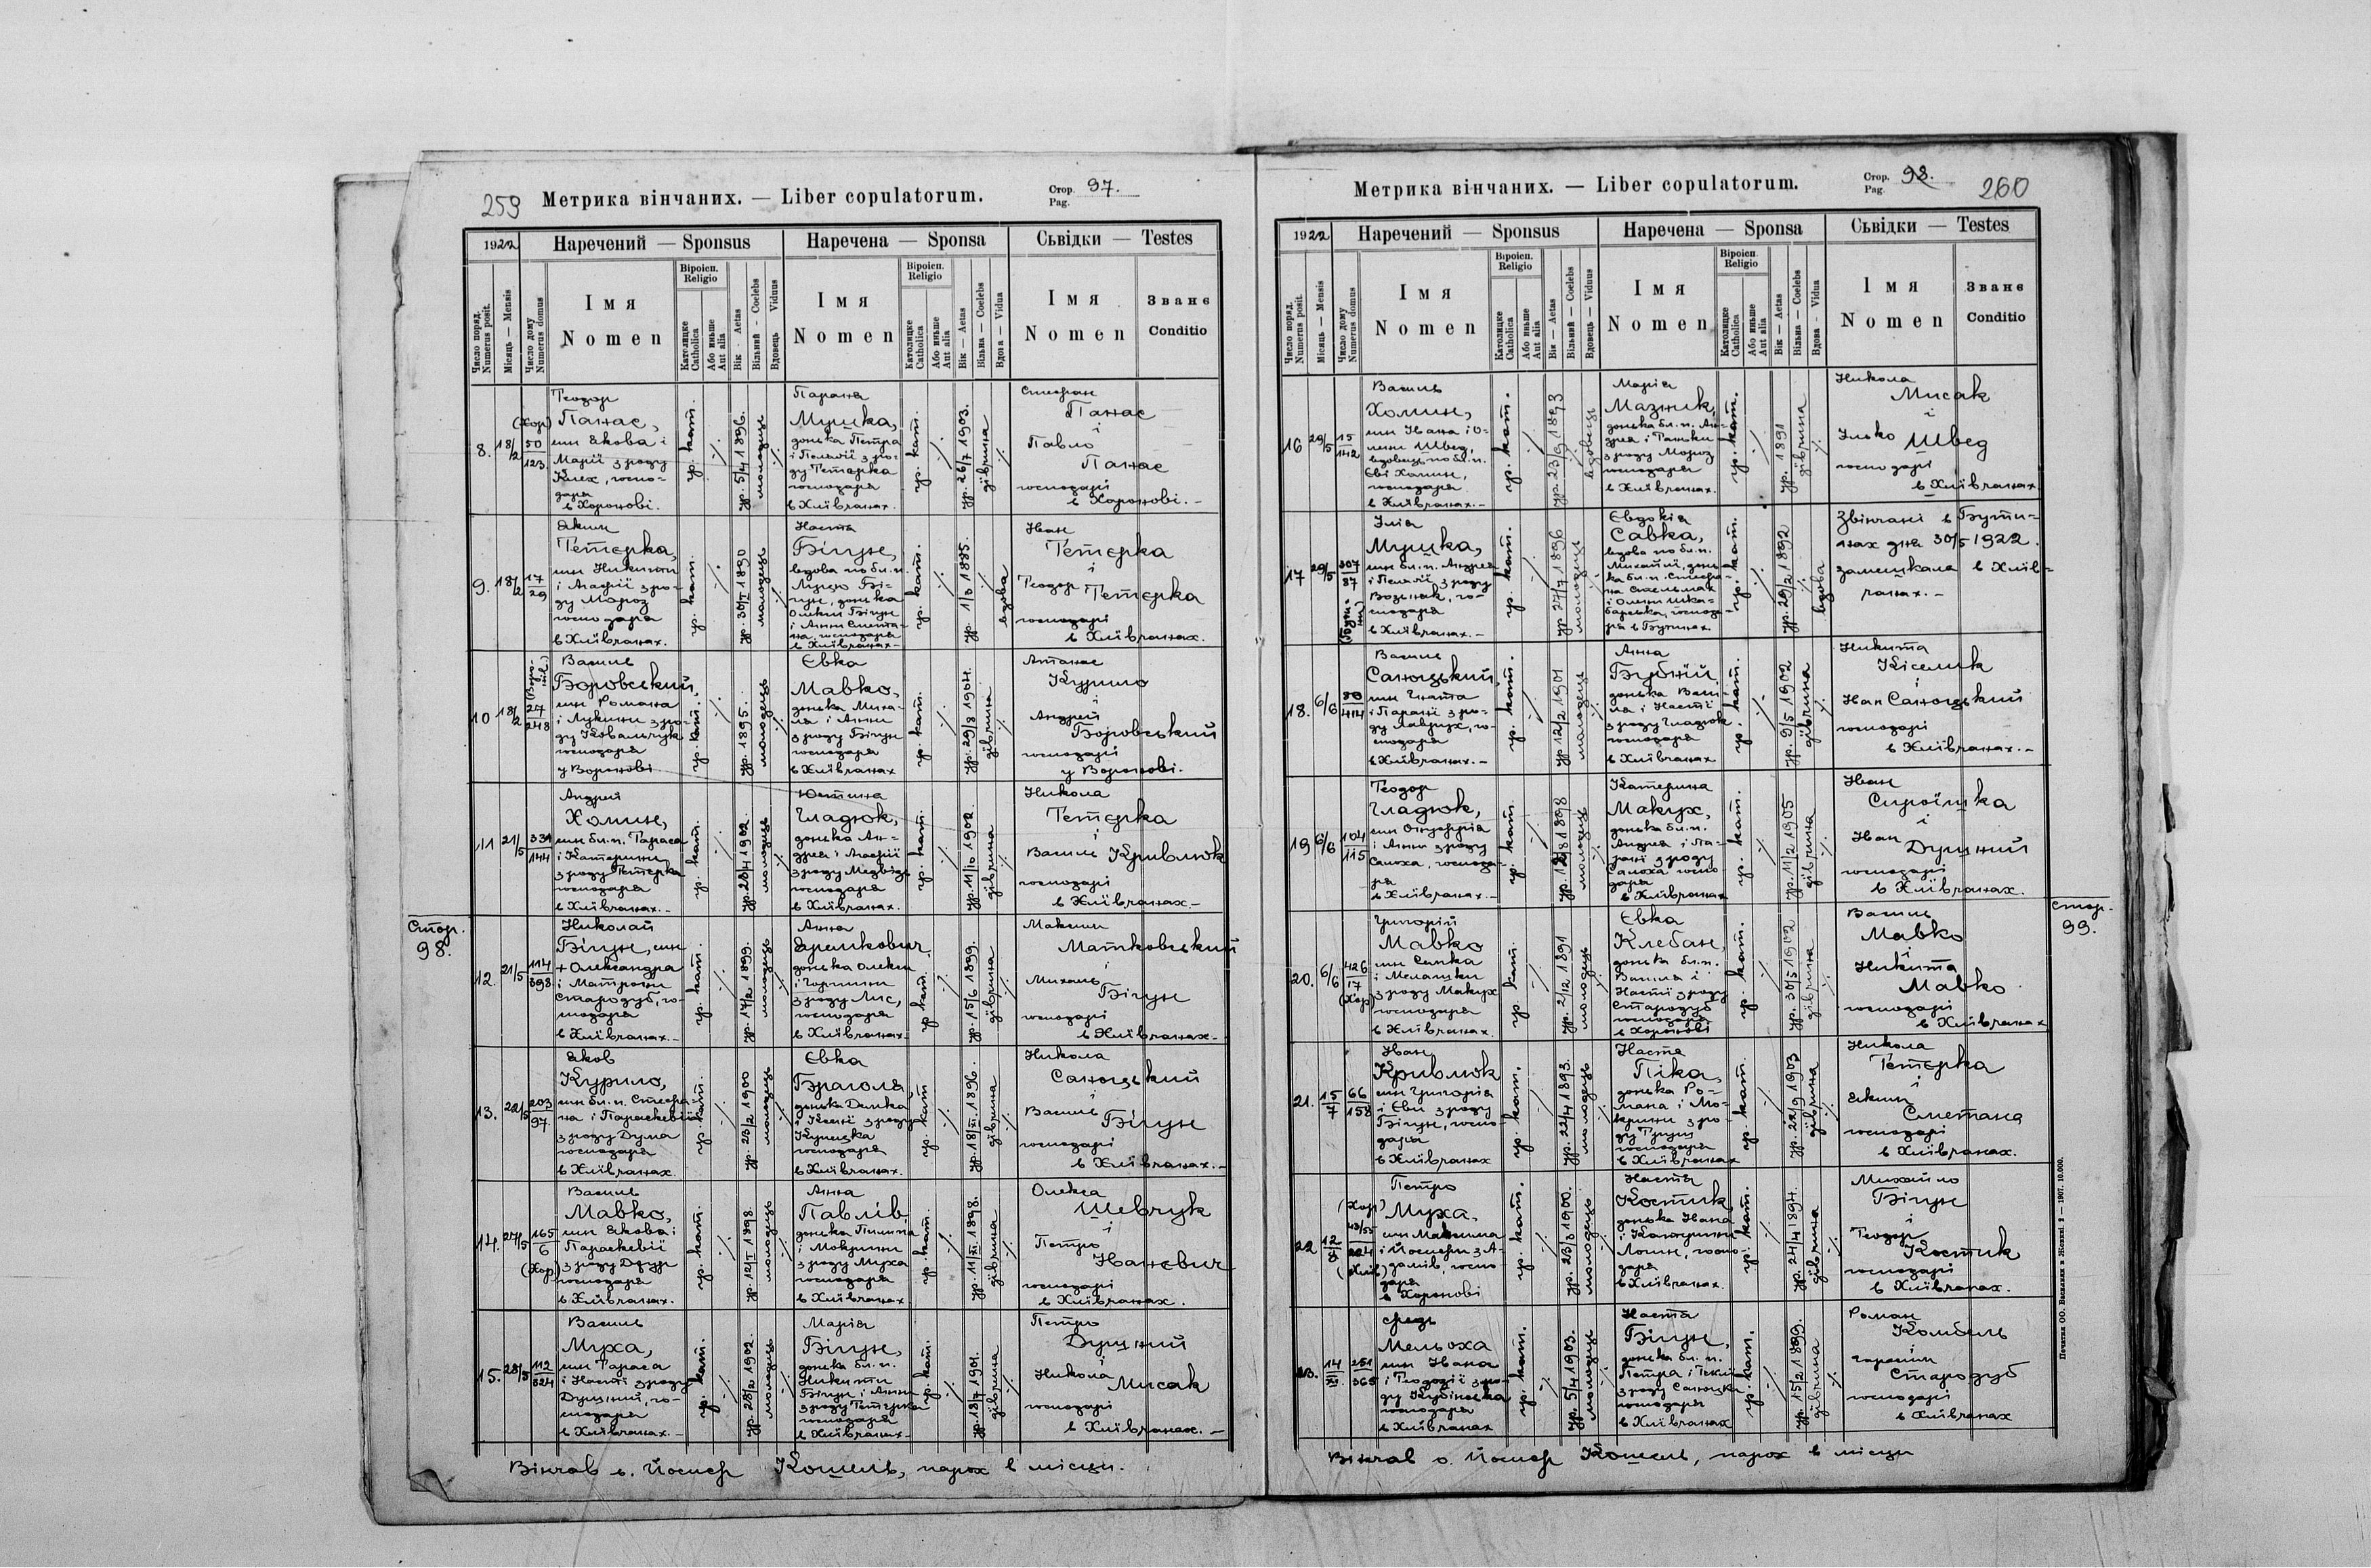 259 Метрика вінчаних. — Liber copulatorum. Стор. Pag. 97.
1922 Наречений — Sponsus Наречена — Sponsa Сьвідки — Testes
Число поряд. Numerus posit.
Місяць — Mensis
Число дому Numerus domus
Імя Nomen
Віроісп. Religio
Католицке Catholica
Або иньше Aut alia
Вік - Aetas
Вільний - Coelebs
Вдовець Viduus
Імя Nomen
Віроісп. Religio
Католицке Catholica
Або иньше Aut alia
Вік — Aetas
Вільна — Coelebs
Вдова — Vidua
Імя Nomen
Званє Conditio
8. 18/2 (Хор) 50 123
Теодор
Панас,
син Якова і
Марії з роду
Клех, госпо-
даря
в Хоронові.
гр. кат.
ур. 5/4 1896.
молодець
Параня
Мушка,
донька Петра
і Пелагії з ро-
ду Тетерка
господаря
в Хлівчанах.
гр. кат.
ур. 26/7 1903.
дівчина
Стефан
Панас
і
Павло
Панас
господарі
в Хоронові. -
9. 18/2 17 29
Яким
Тетєрка,
син Никити
і Анафії з ро-
ду Мороз
господаря
в Хлівчанах.
гр. кат.
ур. 30/I 1890
молодець
Настя
Бігун,
вдова по бл.п.
донька
Олекси Бігун
і Анни Смета-
на, господаря
в Хлівчанах -
гр. кат.
ур. 1/3 1885.
вдова
Іван
Тетєрка
і
Теодор Тетєрка
господарі
в Хлівчанах.
10 18/2 27 248
Василь
Боровський,
син Романа
і Лукини з ро-
ду Ковальчук
господаря
у Воронові
гр. кат.
ур. 1895.
молодець
Євка
Мавко,
донька Миха-
ла і Анни
з роду Бігун
господаря
в Хлівчанах
гр. кат.
ур. 29/8 1904.
дівчина
Атанас
Курило
і
Андрей
Боровський
господарі
у Воронові.
11 21/5 334 144
Андрей
Хомин,
син бл.п. Тараса
і Катерини
з роду Тетєрка
господаря
в Хлівчанах. -
гр. кат.
ур. 28/4 1902.
молодець
Юстина
Гладюк,
донька Ан-
дрея і Анафії
з роду Медвідь
господаря
в Хлівчанах.
гр. кат.
ур. 11/10 1902.
дівчина
Никола
Тетєрка
і
Василь Кривлюк
господарі
в Хлівчанах. -
Стор. 98.
12. 21/5 114 398
Николай
Бігун, син
+ Олександра
і Матрони
Стародуб, го-
сподаря
в Хлівчанах. -
гр. кат.
ур. 17/2 1899.
молодець
Анна
Яремкович
донька Олекси
і Горпини
з роду Лис,
господаря
в Хлівчанах -
гр. кат.
ур. 15/6 1899.
дівчина
Максим
Матковський
і
Михаль
Бігун
господарі
в Хлівчанах -
13. 22/5 203 97
Яков
Курило,
син бл.п. Стефа-
на і Параскевії
з роду Дума
господаря
в Хлівчанах
гр. кат.
ур. 23/2 1900
молодець
Євка
Брагола
донька Данка
і Ксені з роду
господаря
в Хлівчанах.
гр. кат.
ур. 18/XI. 1896.
дівчина
Никола
Саноцький
і
Василь
Бігун
господарі
в Хлівчанах. -
14. 27/5 165 6 (Хор)
Василь
Мавко,
син Якова і
Параскевії
з роду Дзур
господаря
в Хлівчанах.
гр. кат.
ур. 12/I 1898.
молодець
Анна
Павлів,
донька Пилипа
і Мокрини
з роду Муха
господаря
в Хлівчанах.
гр. кат.
ур. 11/XI. 1898.
дівчина
Олекса
Шевчук
і
Петро
Наневич
господарі
в Хлівчанах.
15. 28/5 112 324
Василь
Муха,
син Тараса
і Насті з роду
Душний, го-
сподаря
в Хлівчанах. -
гр. кат.
ур. 28/2 1902.
молодець
Марія
Бігун,
донька бл.п.
Никити
Бігун і Анни
з роду Тетєрка
господаря
в Хлівчанах -
гр. кат.
ур. 13/7 1901.
дівчина
Петро
Душний
і
Никола
Мисак
господарі
в Хлівчанах. -
Вінчав о. Йосиф Кошель, парох в місци.
Метрика вінчаних. — Liber copulatorum. Стор. Pag. 98. 260
1922 Наречений — Sponsus Наречена — Sponsa Сьвідки — Testes
Число поряд. Numerus posit.
Місяць — Mensis
Число дому Numerus domus
Імя Nomen
Віроісп. Religio
Католицке Catholica
Або иньше Aut alia
Вік — Aetas
Вільний — Coelebs
Вдовець — Viduus
Імя Nomen
Віроісп. Religio
Католицке Catholica
Або иньше Aut alia
Вік — Aetas
Вільна — Coelebs
Вдова - Vidua
Імя Nomen
Званє Conditio
16 29/5 15 142
Василь
Хомин,
син Івана і О-
лени Швед,
вдовець по бл.п.
Єві Хомин,
господаря
в Хлівчанах. -
гр. кат.
ур. 23/9 1893
вдовець
Марія
Мазник,
донька бл.п. Ан-
дрея і Татяни
з роду Мороз
господаря
в Хлівчанах.
гр. кат.
ур. 1891
дівчина
Никола
Мисак
і
Улько Швед
господарі
в Хлівчанах.
17 29/5 307 37
Ілія
Мушка,
син бл.п. Андрея
і Пелагії з роду
Возняк, го-
сподаря
в Хлівчанах. -
гр. кат.
ур. 27/7 1896
молодець
Євдокія
Савка,
вдова по бл.п.
Михайлі, донь-
ка бл.п. Стефа-
на
і Олени
господа-
ря в Бутинах.
гр. кат.
ур. 29/2 1892
вдова
Звінчані в Бути-
нах дня 30/5 1922.
замешкала в Хлів-
чанах. -
18. 6/6 80 414
Василь
Саноцький,
син Гната
і Парані з ро-
ду Лаврук, го-
сподаря
в Хлівчанах. -
гр. кат.
ур 12/2 1901
молодець
Анна
Бубній
донька Васи-
ля і Насті
з роду Гладюк
господаря
в Хлівчанах
гр. кат.
ур. 9/5 1902
дівчина
Никита
Кіселик
і
Іван Саноцький
господарі
в Хлівчанах. -
19 6/6 104 115
Теодор
Гладюк,
син Онуфрія
і Анни з роду
Салоха, господа-
ря
в Хлівчанах. -
гр. кат.
ур. 12/8 1898
молодець
Катерина
Макух,
донька бл.п.
Андрея і Па-
рані з роду
Салоха госпо-
даря
в Хлівчанах
гр. кат.
ур. 11/2 1905
дівчина
Іван
Сироїшка
і
Іван
Душний
господарі
в Хлівчанах.
Стор. 99.
20. 6/6 426 17 (Хор)
Григорій
Мавко
син Сенка
і Меланки
з роду Макух
господаря
в Хлівчанах.
гр. кат.
ур. 2/12 1891
молодець
Євка
Клебан,
донька бл.п.
Василя і
Насті з роду
Стародуб
господаря
в Хоронові
гр. кат.
ур. 30/5 1902
дівчина
Василь
Мавко
і
Никита
Мавко
господарі
в Хлівчанах
21. 15/7 66 158
Іван
Кривлюк
син Григорія
і Єви з роду
Бігун, госпо-
даря
в Хлівчанах
гр. кат.
ур. 22/4 1893.
молодець
Настя
Піка,
донька Ро-
мана і Мо-
крини з ро-
ду Грущ
господаря
в Хлівчанах
гр. кат.
ур. 22/9 1903
дівчина
Никола
Тетєрка
і
Яким
Сметана
господарі
в Хлівчанах.
22 12/X (Хор) 224 (Хлів)
Петро
Муха,
син Максима
і Йосифи з А-
дамів, госпо-
даря
в Хоронові
гр. кат.
ур. 23/3 1900.
молодець
Настя
Костик
донька Івана
і Катерини
господаря
в Хлівчанах.
гр. кат.
ур. 24/4 1894.
дівчина
Михайло
Бігун
і
Теодор
Костик
господарі
в Хлівчанах.
23. 14/XI. 251 365
Мельоха
син Івана
і Теодозії з ро-
ду Кубінська
господаря
в Хлівчанах
гр. кат.
ур. 5/4 1903.
молодець
Настя
Бігун,
донька бл.п.
Петра і Теклі
з роду Саноцка
господаря
в Хлівчанах
гр. кат.
ур. 15/2 1899.
дівчина
Роман
Комбель
і
Герасим
Стародуб
господарі
в Хлівчанах
Вінчав о. Йосиф Кошель, парох в місци
Печатня ОО. Василиан в Жовкві 2 — 1907. 10.000.